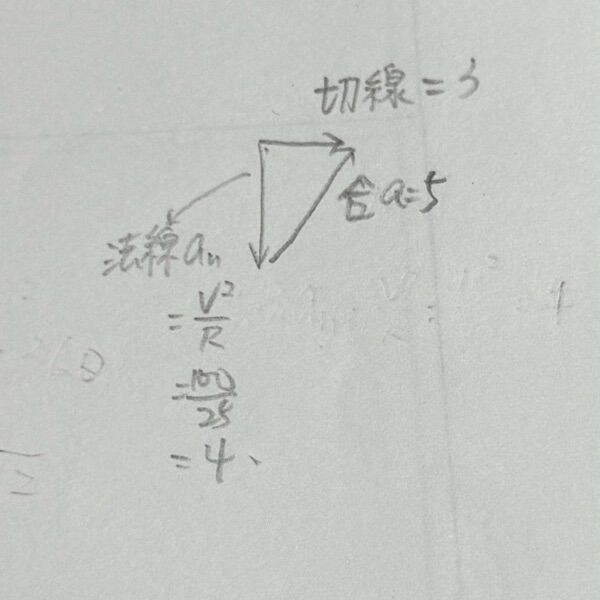 切線 = 3
合 a = 5
法線 aₙ
= V²/R
= 100/25
= 4